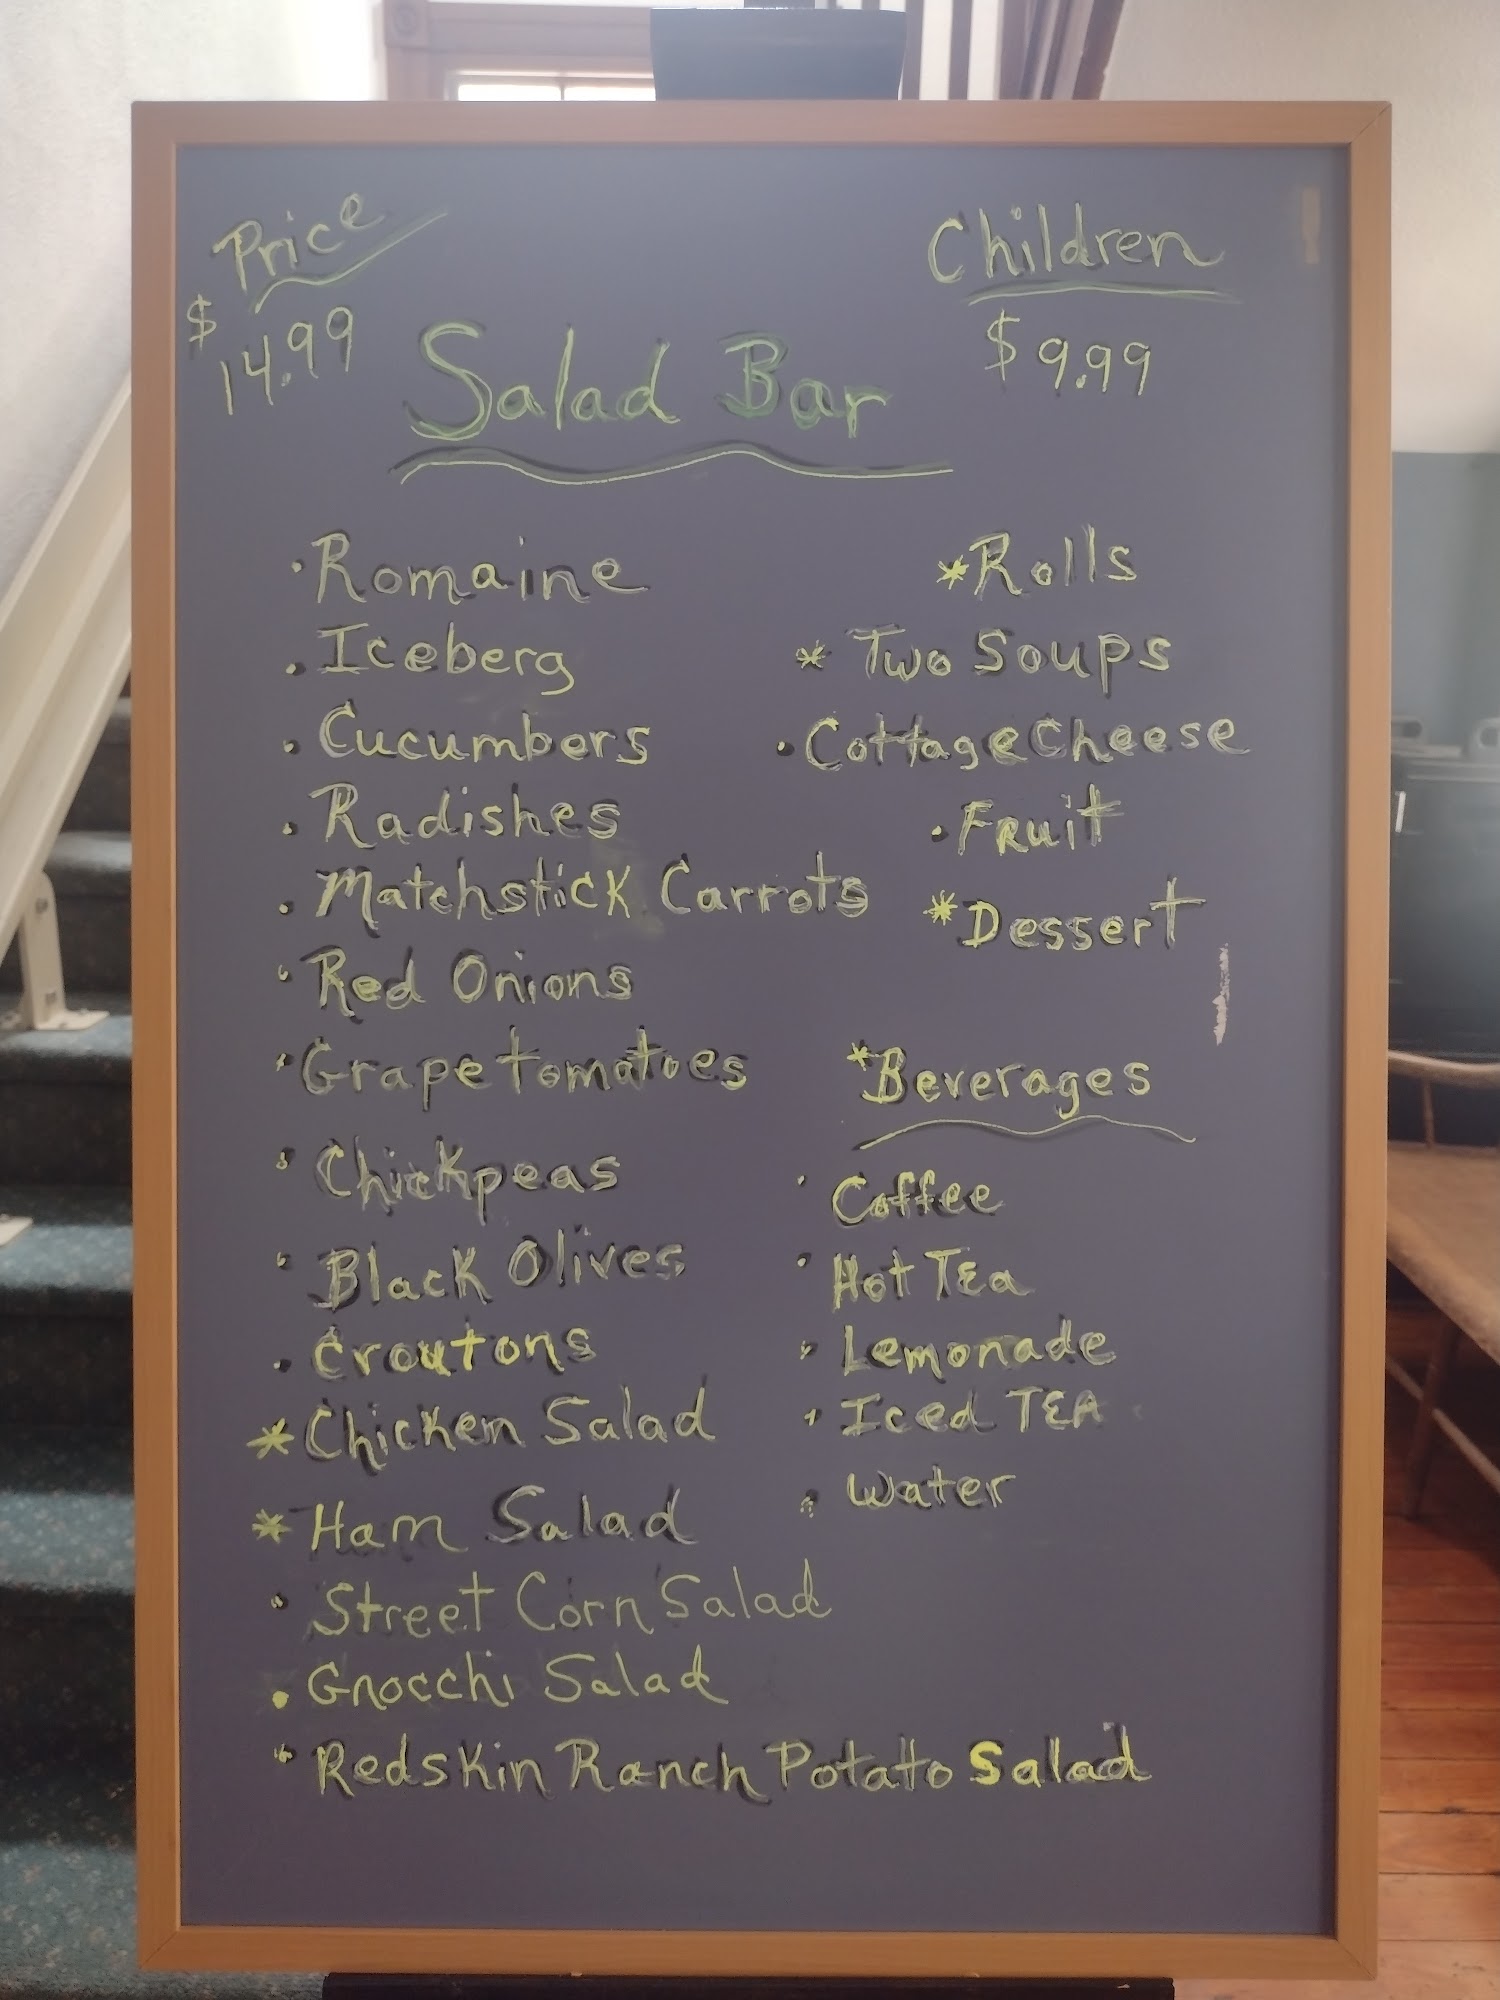 Price
$14.99
Children
$9.99
Salad Bar
· Romaine
· Iceberg
· Cucumbers
· Radishes
· Matchstick Carrots
· Red Onions
· Grape tomatoes
· Chickpeas
· Black Olives
· Croutons
* Chicken Salad
* Ham Salad
· Street Corn Salad
· Gnocchi Salad
· Redskin Ranch Potato Salad
* Rolls
* Two Soups
· Cottage Cheese
· Fruit
* Dessert
* Beverages
· Coffee
· Hot Tea
· Lemonade
· Iced TEA
· Water